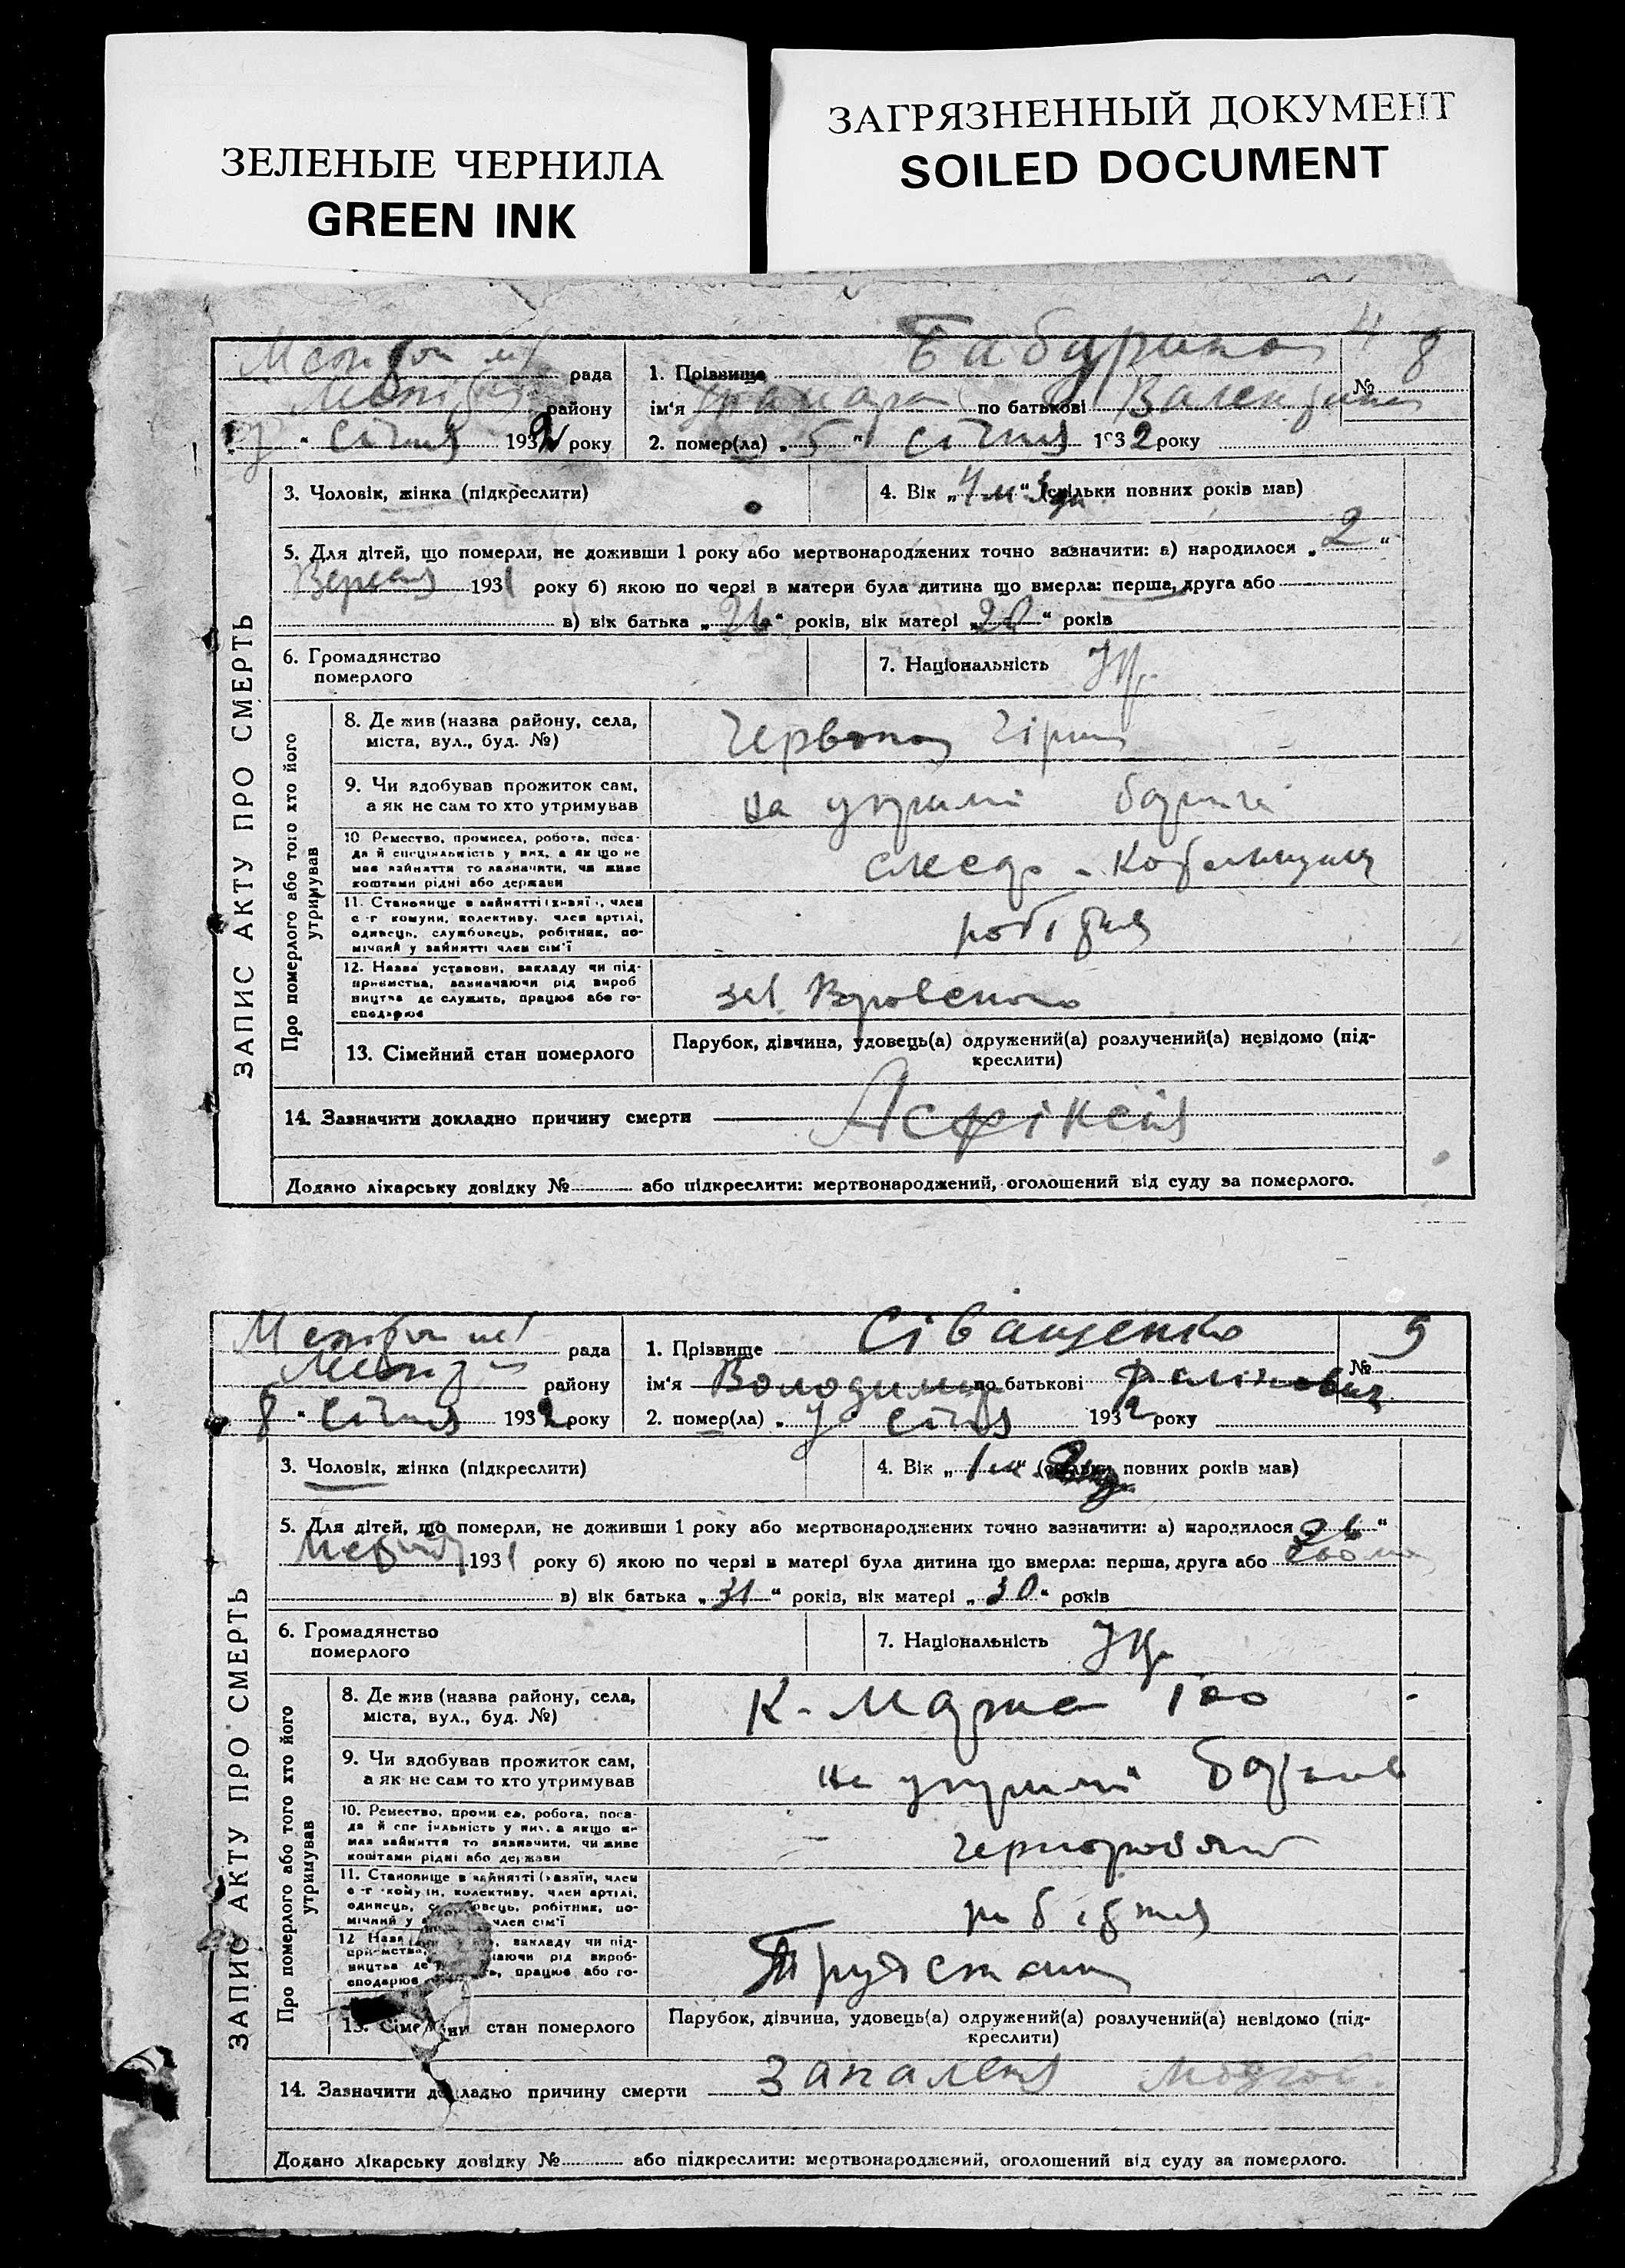 ЗЕЛЕНЫЕ ЧЕРНИЛА
GREEN INK
ЗАГРЯЗНЕННЫЙ ДОКУМЕНТ
SOILED DOCUMENT
ЗАПИС АКТУ ПРО СМЕРТЬ
рада
району
" січня 1932 року
1. Прізвище Бабурина
№ 8
ім'я Тамара по батькові
2. помер(ла) „5" січня 1932 року
3. Чоловік, жінка (підкреслити)
4. Вік „4 м" 3 дн (скільки повних років мав)
5. Для дітей, що померли, не доживши 1 року або мертвонароджених точно зазначити: а) народилося „2"
Вересня 1931 року б) якою по черзі в матери була дитина що вмерла: перша, друга або
в) вік батька „26" років, вік матері „20" років
6. Громадянство
померлого
7. Національність Укр.
Про померлого або того хто його утримував
8. Де жив (назва району, села,
міста, вул., буд. №)
Червона
9. Чи здобував прожиток сам,
а як не сам то хто утримував
на утрим батька
10 Ремество, промисел, робота, поса-
да й спеціяльність у них, а як що не
мав зайняття то зазначити, чи живе
коштами рідні або держави
слюсар -
11. Становище в зайнятті (хазяїн, член
с-г комуни, колективу, член артілі,
одинець, службовець, робітник, по-
мічний у зайнятті член сім'ї
робітник
12. Назва установи, закладу чи під-
приємства, зазначаючи рід вироб
ництва де служить, працює або го-
сподарює
зав.
13. Сімейний стан померлого
Парубок, дівчина, удовець(а) одружений(а) розлучений(а) невідомо (під-
креслити)
14. Зазначити докладно причину смерти Асфіксія
Додано лікарську довідку № або підкреслити: мертвонароджений, оголошений від суду за померлого.
ЗАПИС АКТУ ПРО СМЕРТЬ
рада
району
8 " січня 1932 року
1. Прізвище Сіващенко
№ 9
ім'я Володимир по батькові
2. помер(ла) „ " січня 1932 року
3. Чоловік, жінка (підкреслити)
4. Вік „1 м" (скільки повних років мав)
5. Для дітей, що померли, не доживши 1 року або мертвонароджених точно зазначити: а) народилося „26"
1931 року б) якою по черзі в матері була дитина що вмерла: перша, друга або
в) вік батька „31" років, вік матері „30" років
6. Громадянство
померлого
7. Національність Укр.
Про померлого або того хто його утримував
8. Де жив (назва району, села,
міста, вул., буд. №)
К. Маркса 100
9. Чи здобував прожиток сам,
а як не сам то хто утримував
на утрим батьків
10. Ремество, промисел, робота, поса-
да й спеціяльність у них, а якщо не
мав зайняття то зазначити, чи живе
коштами рідні або держави
чернороб
11. Становище в зайнятті (хазяїн, член
с-г комуни, колективу, член артілі,
одинець, службовець, робітник, по-
мічний у член сім'ї
робітник
12 Назва закладу чи під-
приємства, зазначаючи рід вироб-
ництва де працює або го-
сподарює
13. Сімейний стан померлого
Парубок, дівчина, удовець(а) одружений(а) розлучений(а) невідомо (під-
креслити)
14. Зазначити докладно причину смерти Запалення
Додано лікарську довідку № або підкреслити: мертвонароджений, оголошений від суду за померлого.